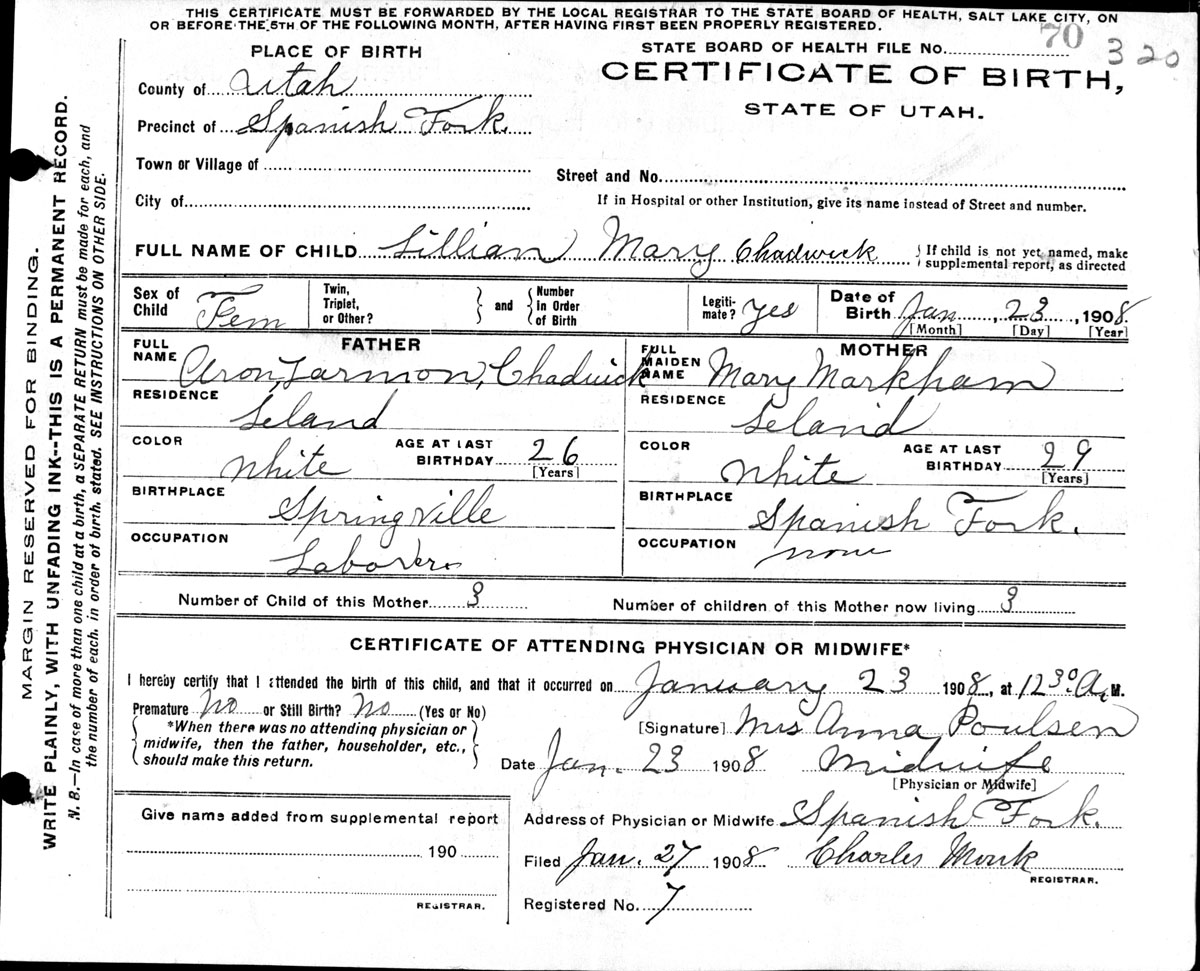 THIS CERTIFICATE MUST BE FORWARDED BY THE LOCAL REGISTRAR TO THE STATE BOARD OF HEALTH, SALT LAKE CITY, ON
OR BEFORE THE 5TH OF THE FOLLOWING MONTH, AFTER HAVING FIRST BEEN PROPERLY REGISTERED.
MARGIN RESERVED FOR BINDING.
WRITE PLAINLY, WITH UNFADING INK--THIS IS A PERMANENT RECORD.
N. B.—In case of more than one child at a birth, a SEPARATE RETURN must be made for each, and
the number of each, in order of birth, stated. SEE INSTRUCTIONS ON OTHER SIDE.
PLACE OF BIRTH
STATE BOARD OF HEALTH FILE No. 70 320
CERTIFICATE OF BIRTH,
STATE OF UTAH.
County of Utah
Precinct of Spanish Fork
Town or Village of
Street and No.
City of
If in Hospital or other Institution, give its name instead of Street and number.
FULL NAME OF CHILD Lillian Mary Chadwick
If child is not yet named, make
supplemental report, as directed
Sex of Child Fem
Twin, Triplet, or Other?
and
Number in Order of Birth
Legiti-mate? Yes
Date of Birth Jan, 23, 1908
[Month] [Day] [Year]
FATHER
FULL NAME Aron, Tarmon, Chadwick
RESIDENCE Leland
COLOR White
AGE AT LAST BIRTHDAY 26
[Years]
BIRTHPLACE Springville
OCCUPATION Laborer
MOTHER
FULL MAIDEN NAME Mary Markham
RESIDENCE Leland
COLOR White
AGE AT LAST BIRTHDAY 29
[Years]
BIRTHPLACE Spanish Fork.
OCCUPATION none
Number of Child of this Mother 3
Number of children of this Mother now living 3
CERTIFICATE OF ATTENDING PHYSICIAN OR MIDWIFE*
I hereby certify that I attended the birth of this child, and that it occurred on January 23 1908, at 12 30 A. M.
Premature No or Still Birth? No (Yes or No)
*When there was no attending physician or
midwife, then the father, householder, etc.,
should make this return.
[Signature] Mrs Anna Poulsen
Date Jan. 23 1908 Midwife
[Physician or Midwife]
Give name added from supplemental report
190
REGISTRAR.
Address of Physician or Midwife Spanish Fork.
Filed Jan. 27 1908 Charles Monk
REGISTRAR.
Registered No. 7